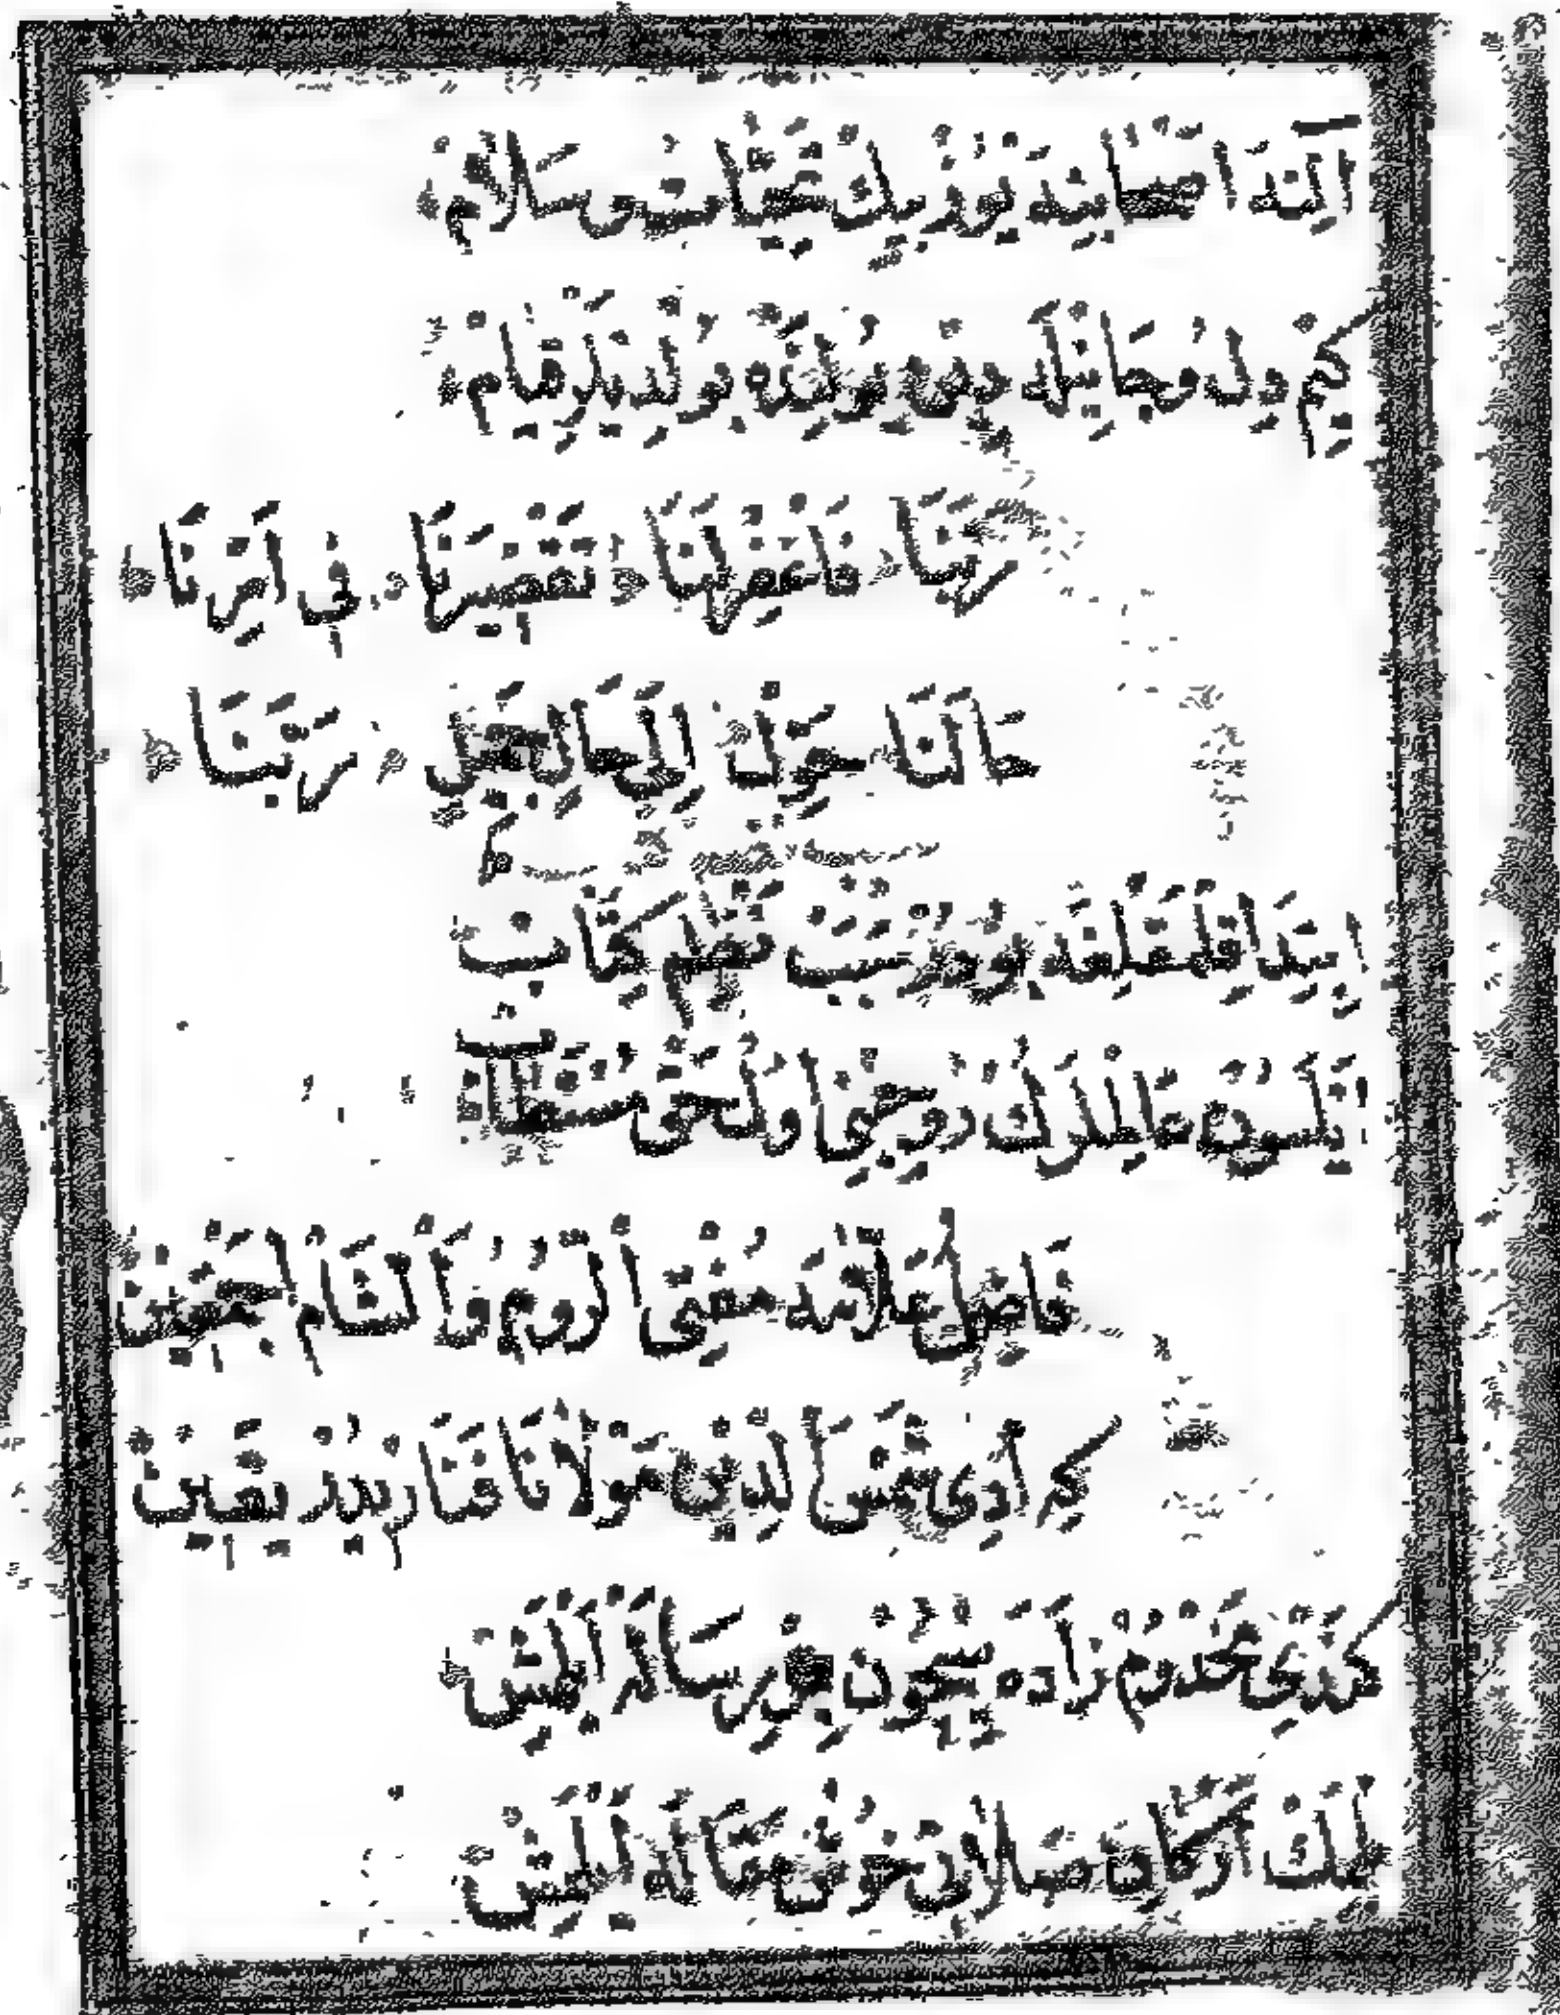 آلِنَه اَصْحَابِنَه يُوزْ بِيكْ تَحِيَّاتْ وسَلَامْ
كِيمْ دِلُ وجَانِيلَه دِينْ يُولِنْدَه بُولْدِيلَرْ قِيَامْ
رَبَّنَا فَاغْفِرْلَنَا تَقْصِيرَنَا فِي اَمْرِنَا
حَالَنَا حَوِّلْ اِلَى حَالِ رَبَّنَا
اِبْتِدَا قِلْمَقْلِغَه بُودُرْ سَبَبْ نَظْمِ كِتَابْ
اَيْلَسُونْ عَالِمْلَرِكْ رُوحِنْ اُولْ حَقْ مُسْتَطَابْ
فَاضِلُ عَلَّامَه مُفْتِى اَلرُّومْ وَاَلشَّامْ اَجْمَعِينْ
كِم اَدِى شَمْسَ الدِّينْ مَوْلَانَا فَنَارِيدُرْ يَقِينْ
كَنْدِى مَخْدُومْ زَادَه سِيچُونْ بِرْ رِسَالَه اَيْلَمِشْ
اَرْكَانِ صَلَاتِى خُوشْ مَقَالَه اَيْلَمِشْ